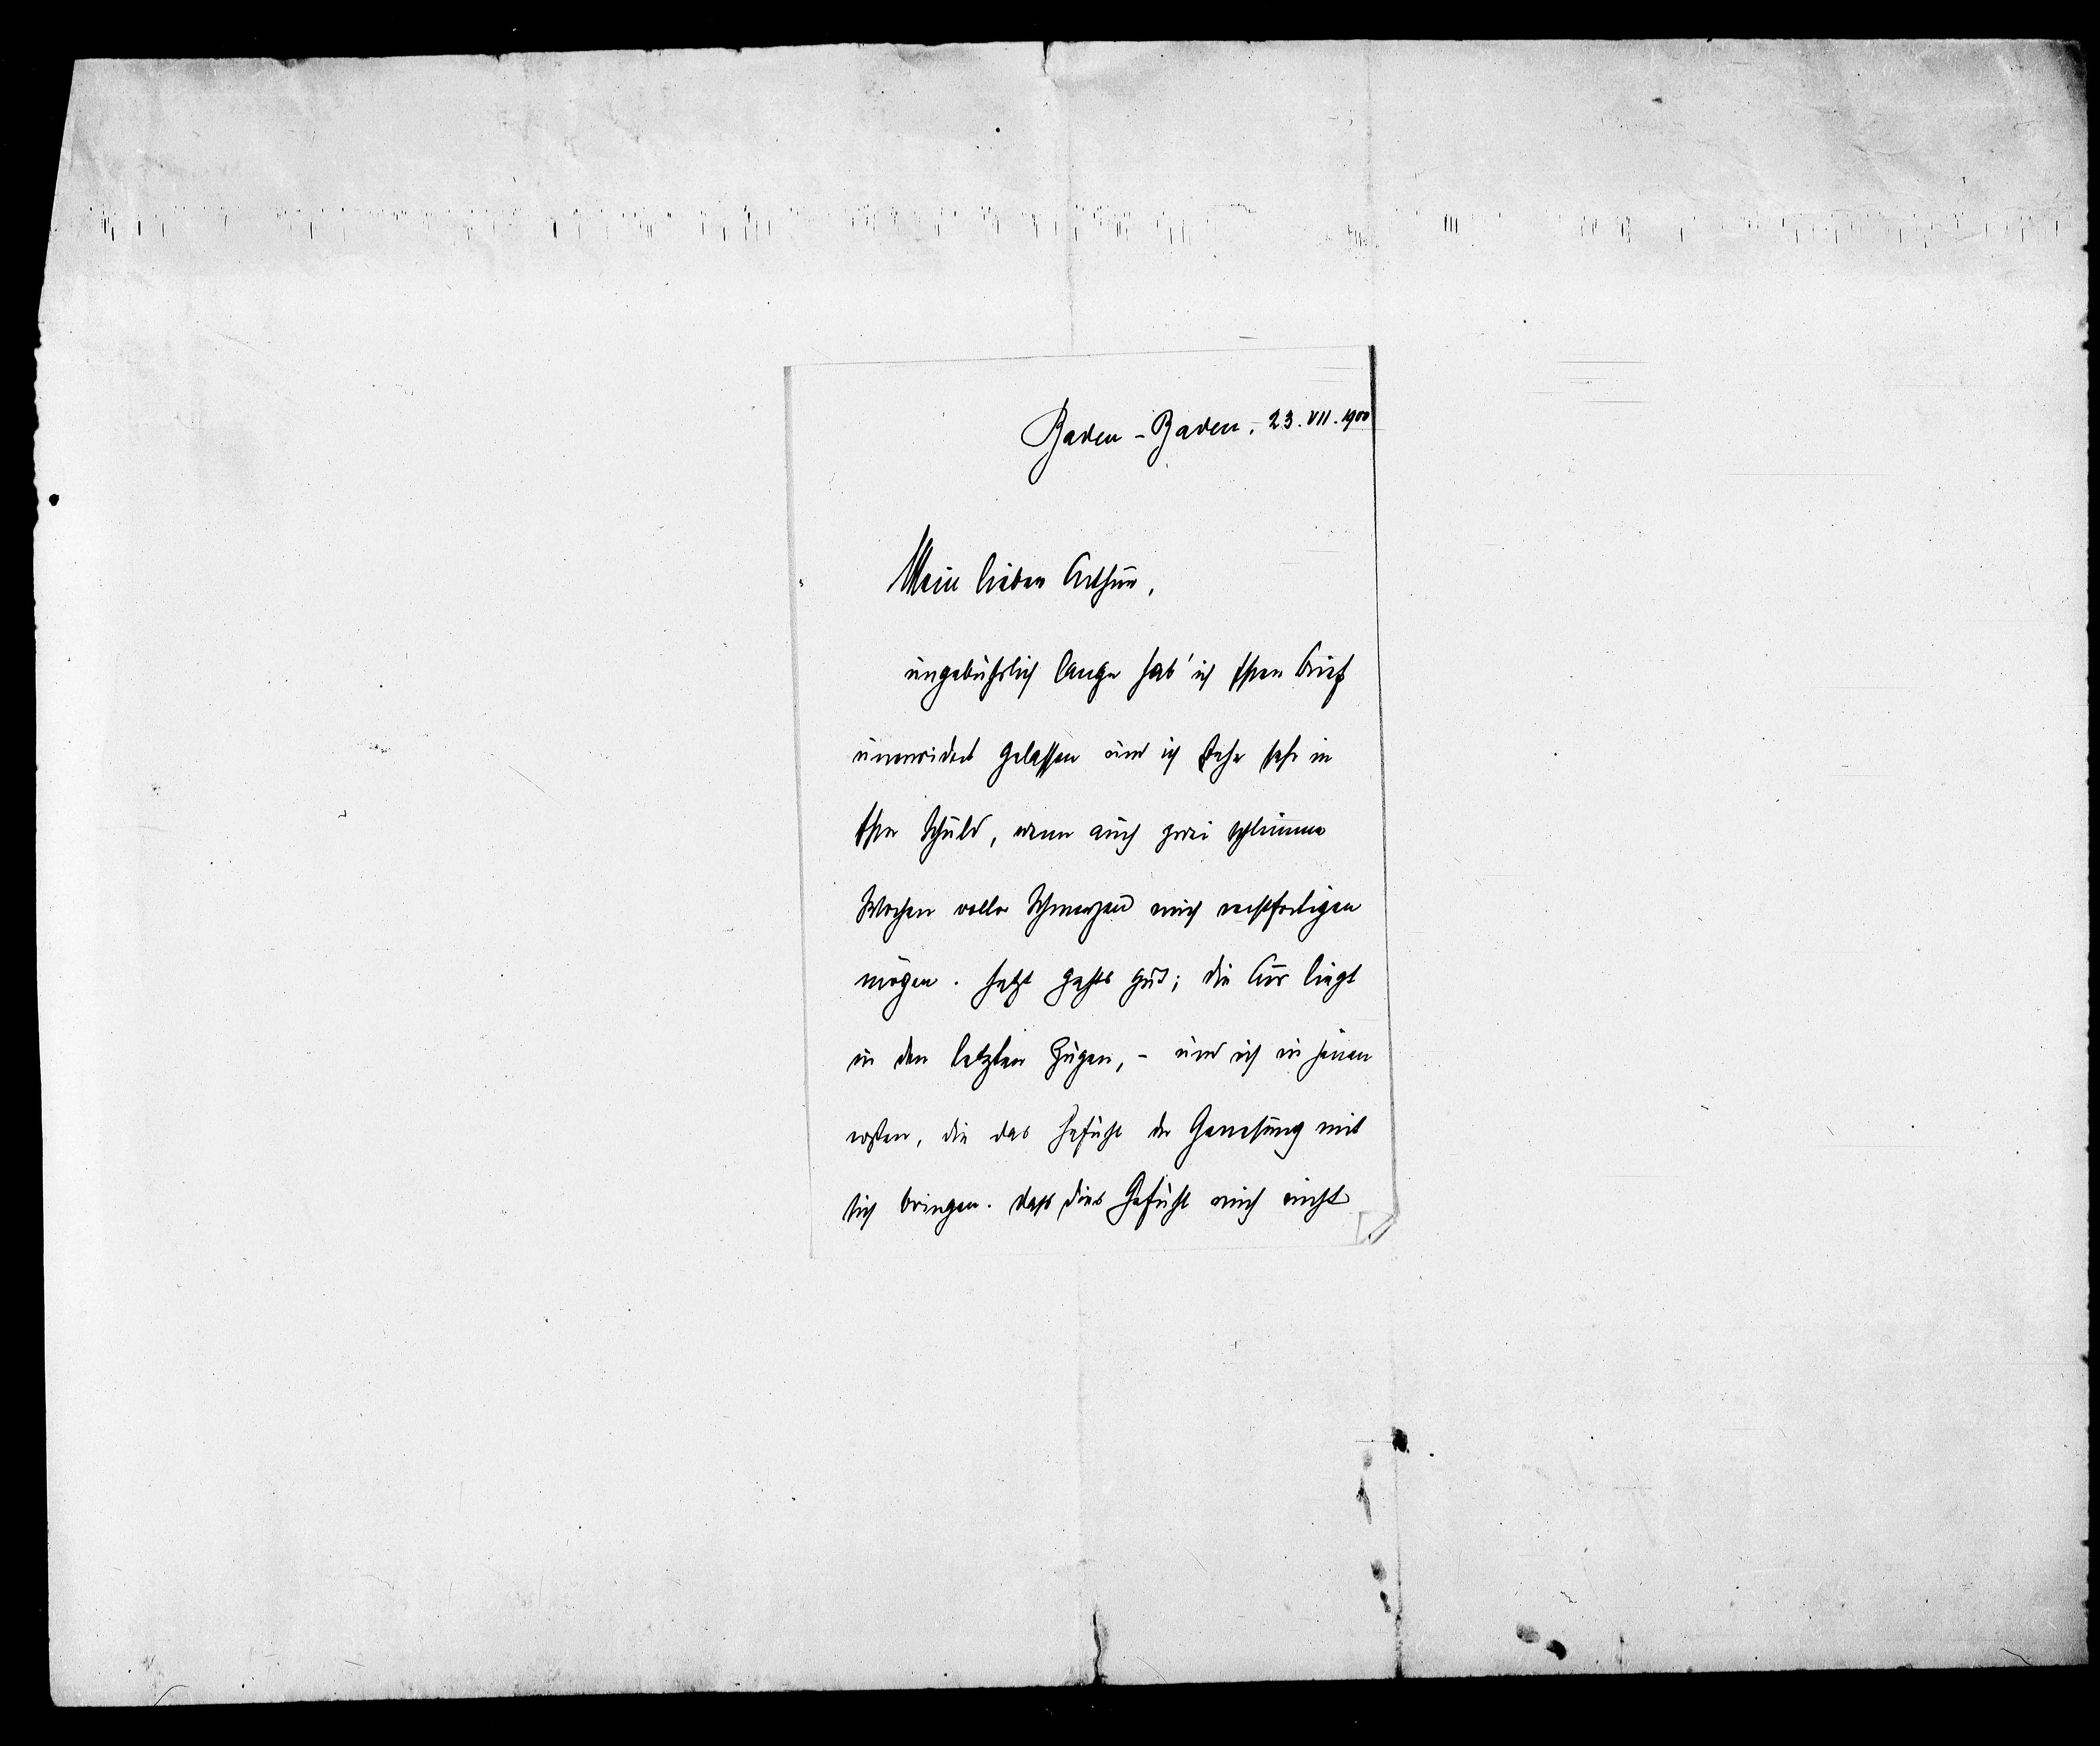 Baden-Baden, 23. VII. 1900
Mein lieber Arthur,
ungebührlich lange hab' ich Ihren Brief
unerwidert gelassen und ich stehe sehr in
Ihrer Schuld, wenn auch zwei schlimme
Wochen voller Schmerzen mich rechtfertigen
mögen. Jetzt gehts gut; die Cur liegt
in den letzten Zügen, – und ich in jenen
ersten, die das Gefühl der Genesung mit
sich bringen. Dass dies Gefühl mich nicht